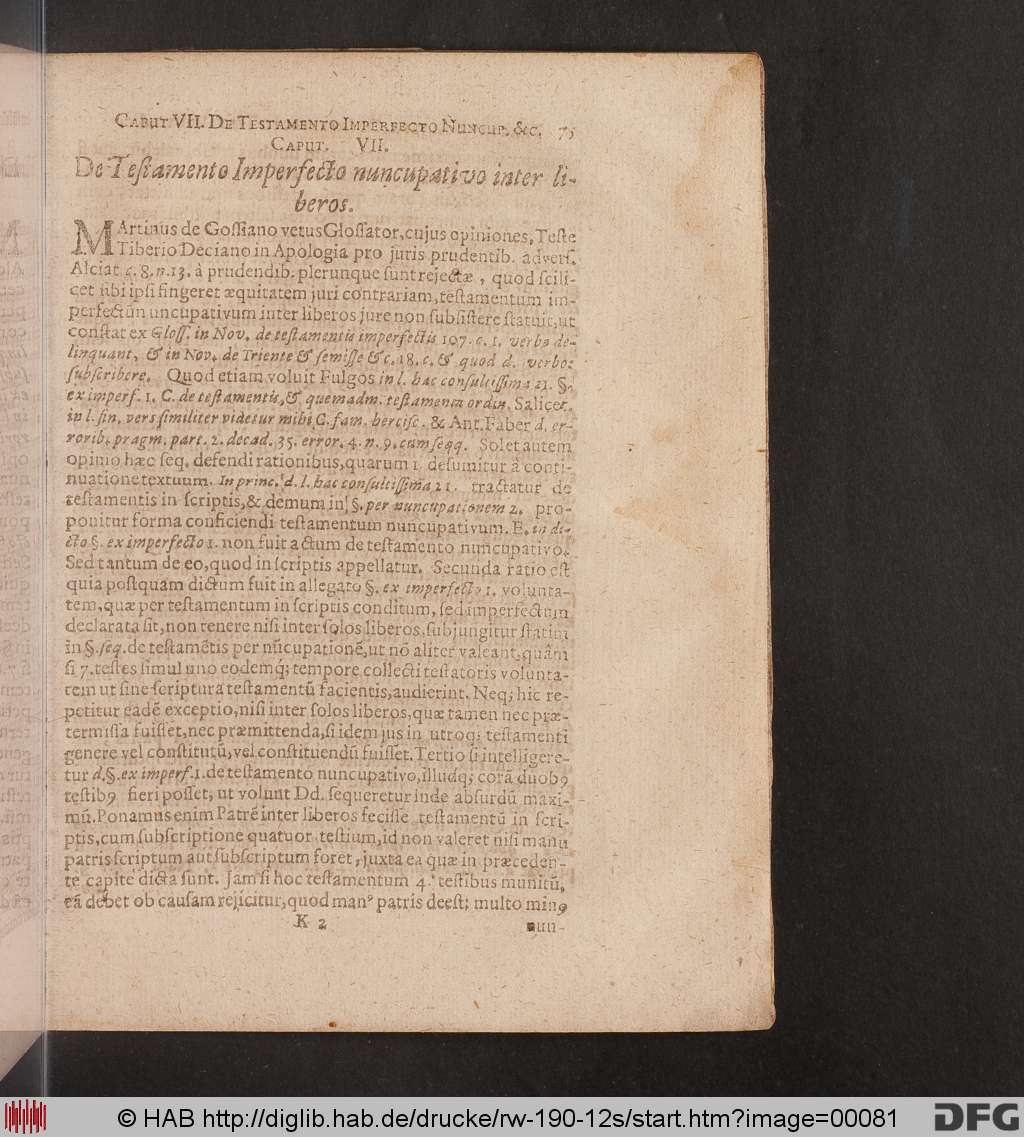 CAPUT VII. DE TESTAMENTO IMPERFECTO NUNCUP. &c. 75
CAPUT. VII.
De Teſtamento Imperfecto nuncupativo inter li-
beros.
MArtinus de Goſſiano vetus Gloſſator, cujus opiniones, Teſte
Tiberio Deciano in Apologia pro juris prudentib. adverſ.
Alciat c. 8. n. 13. à prudendib. plerunque ſunt rejectæ, quod ſcili-
cet ubi ipſi fingeret æquitatem juri contrariam, teſtamentum im-
perfectūn uncupativum inter liberos jure non ſubſiſtere ſtatuit, ut
conſtat ex Gloſſ. in Nov. de teſtamentis imperfectis 107. c. 1. verbo de-
linquant, & in Nov. de Triente & ſemiſſe &c. 18. c. & quod d. verbo:
ſubſcribere. Quod etiam voluit Fulgos in l. hac conſultiſſima 21. §.
ex imperf. 1. C. de teſtamentis, & quemadm. teſtamenta ordin. Salicet.
in l. fin. verſ ſimiliter videtur mihi C. fam. herciſc. & Ant. Faber d. er-
rorib. pragm. part. 2. decad. 35. error. 4. n. 9. cum ſeqq. Solet autem
opinio hæc ſeq. defendi rationibus, quarum 1. deſumitur à conti-
nuatione textuum. In princ. d. l. hac conſultiſſima 21. tractatur de
teſtamentis in ſcriptis, & demum in §. per nuncupationem 2. pro-
ponitur forma conficiendi teſtamentum nuncupativum. E. in di-
cto §. ex imperfecto 1. non fuit actum de teſtamento nuncupativo.
Sed tantum de eo, quod in ſcriptis appellatur. Secunda ratio eſt
quia poſtquam dictum fuit in allegato §. ex imperfecto 1. volunta-
tem, quæ per teſtamentum in ſcriptis conditum, ſed imperfectum
declarata ſit, non tenere niſi inter ſolos liberos, ſubjungitur ſtatim
in §. ſeq. de teſtamētis per nūcupationē, ut nō aliter valeant, quàm
ſi 7. teſtes ſimul uno eodemq; tempore collecti teſtatoris volunta-
tem ut ſine ſcriptura teſtamentū facientis, audierint. Neq; hic re-
petitur eadē exceptio, niſi inter ſolos liberos, quæ tamen nec præ-
termiſſa fuiſſet, nec præmittenda, ſi idem jus in utroq; teſtamenti
genere vel conſtitutū, vel conſtituendū fuiſſet. Tertio ſi intelligere-
tur d. §. ex imperf. 1. de teſtamento nuncupativo, illudq; corā duobꝰ
teſtibꝰ fieri poſſet, ut volunt Dd. ſequeretur inde abſurdū maxi-
mū. Ponamus enim Patrē inter liberos feciſſe teſtamentū in ſcri-
ptis, cum ſubſcriptione quatuor teſtium, id non valeret niſi manu
patris ſcriptum aut ſubſcriptum foret, juxta ea quæ in præceden-
te capite dicta ſunt. Jam ſi hoc teſtamentum 4. teſtibus munitū,
eā debet ob cauſam rejicitur, quod manꝰ patris deeſt; multo minꝰ
K 2 nun-
© HAB http://diglib.hab.de/drucke/rw-190-12s/start.htm?image=00081 DFG